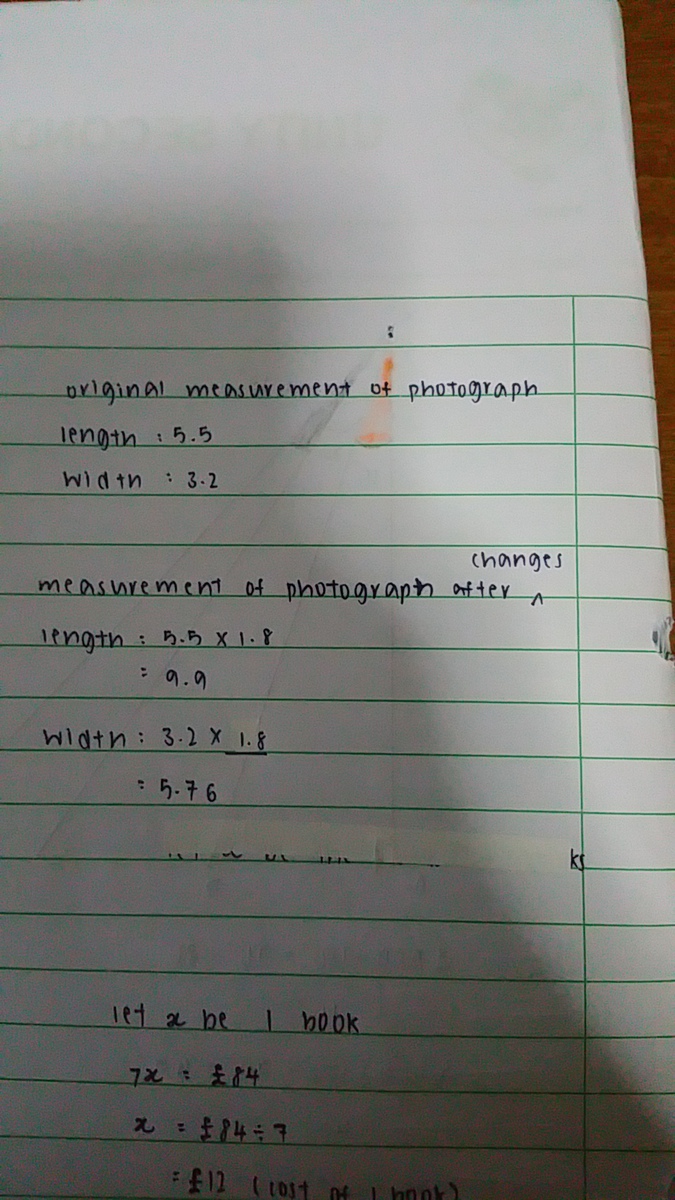 original measurement of photograph
length : 5.5
width : 3.2
changes
measurement of photograph after ^
length : 5.5 x 1.8
= 9.9
width : 3.2 x 1.8
= 5.76
ks
let x be 1 book
7x = £84
x = £84 ÷ 7
= £12 (cost of 1 book)